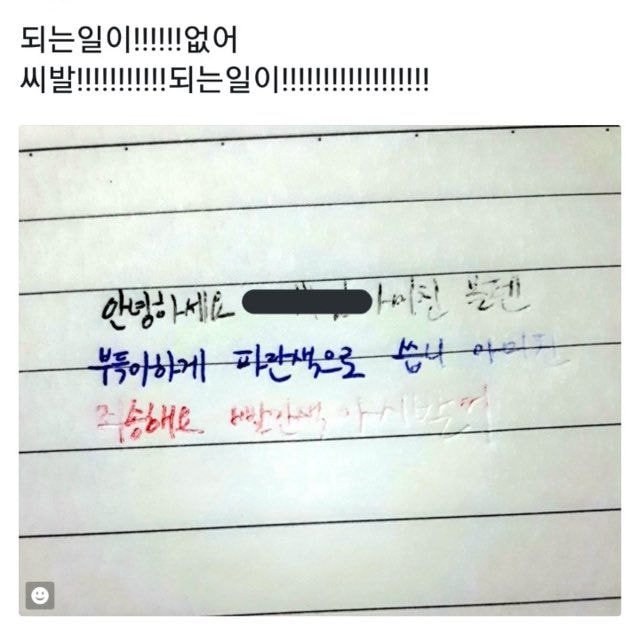 되는일이!!!!!!없어
씨발!!!!!!!!!!!되는일이!!!!!!!!!!!!!!!!!!
안녕하세요 아미친 볼펜
부득이하게 파란색으로 씁니 아미친
죄송해요 빨간색